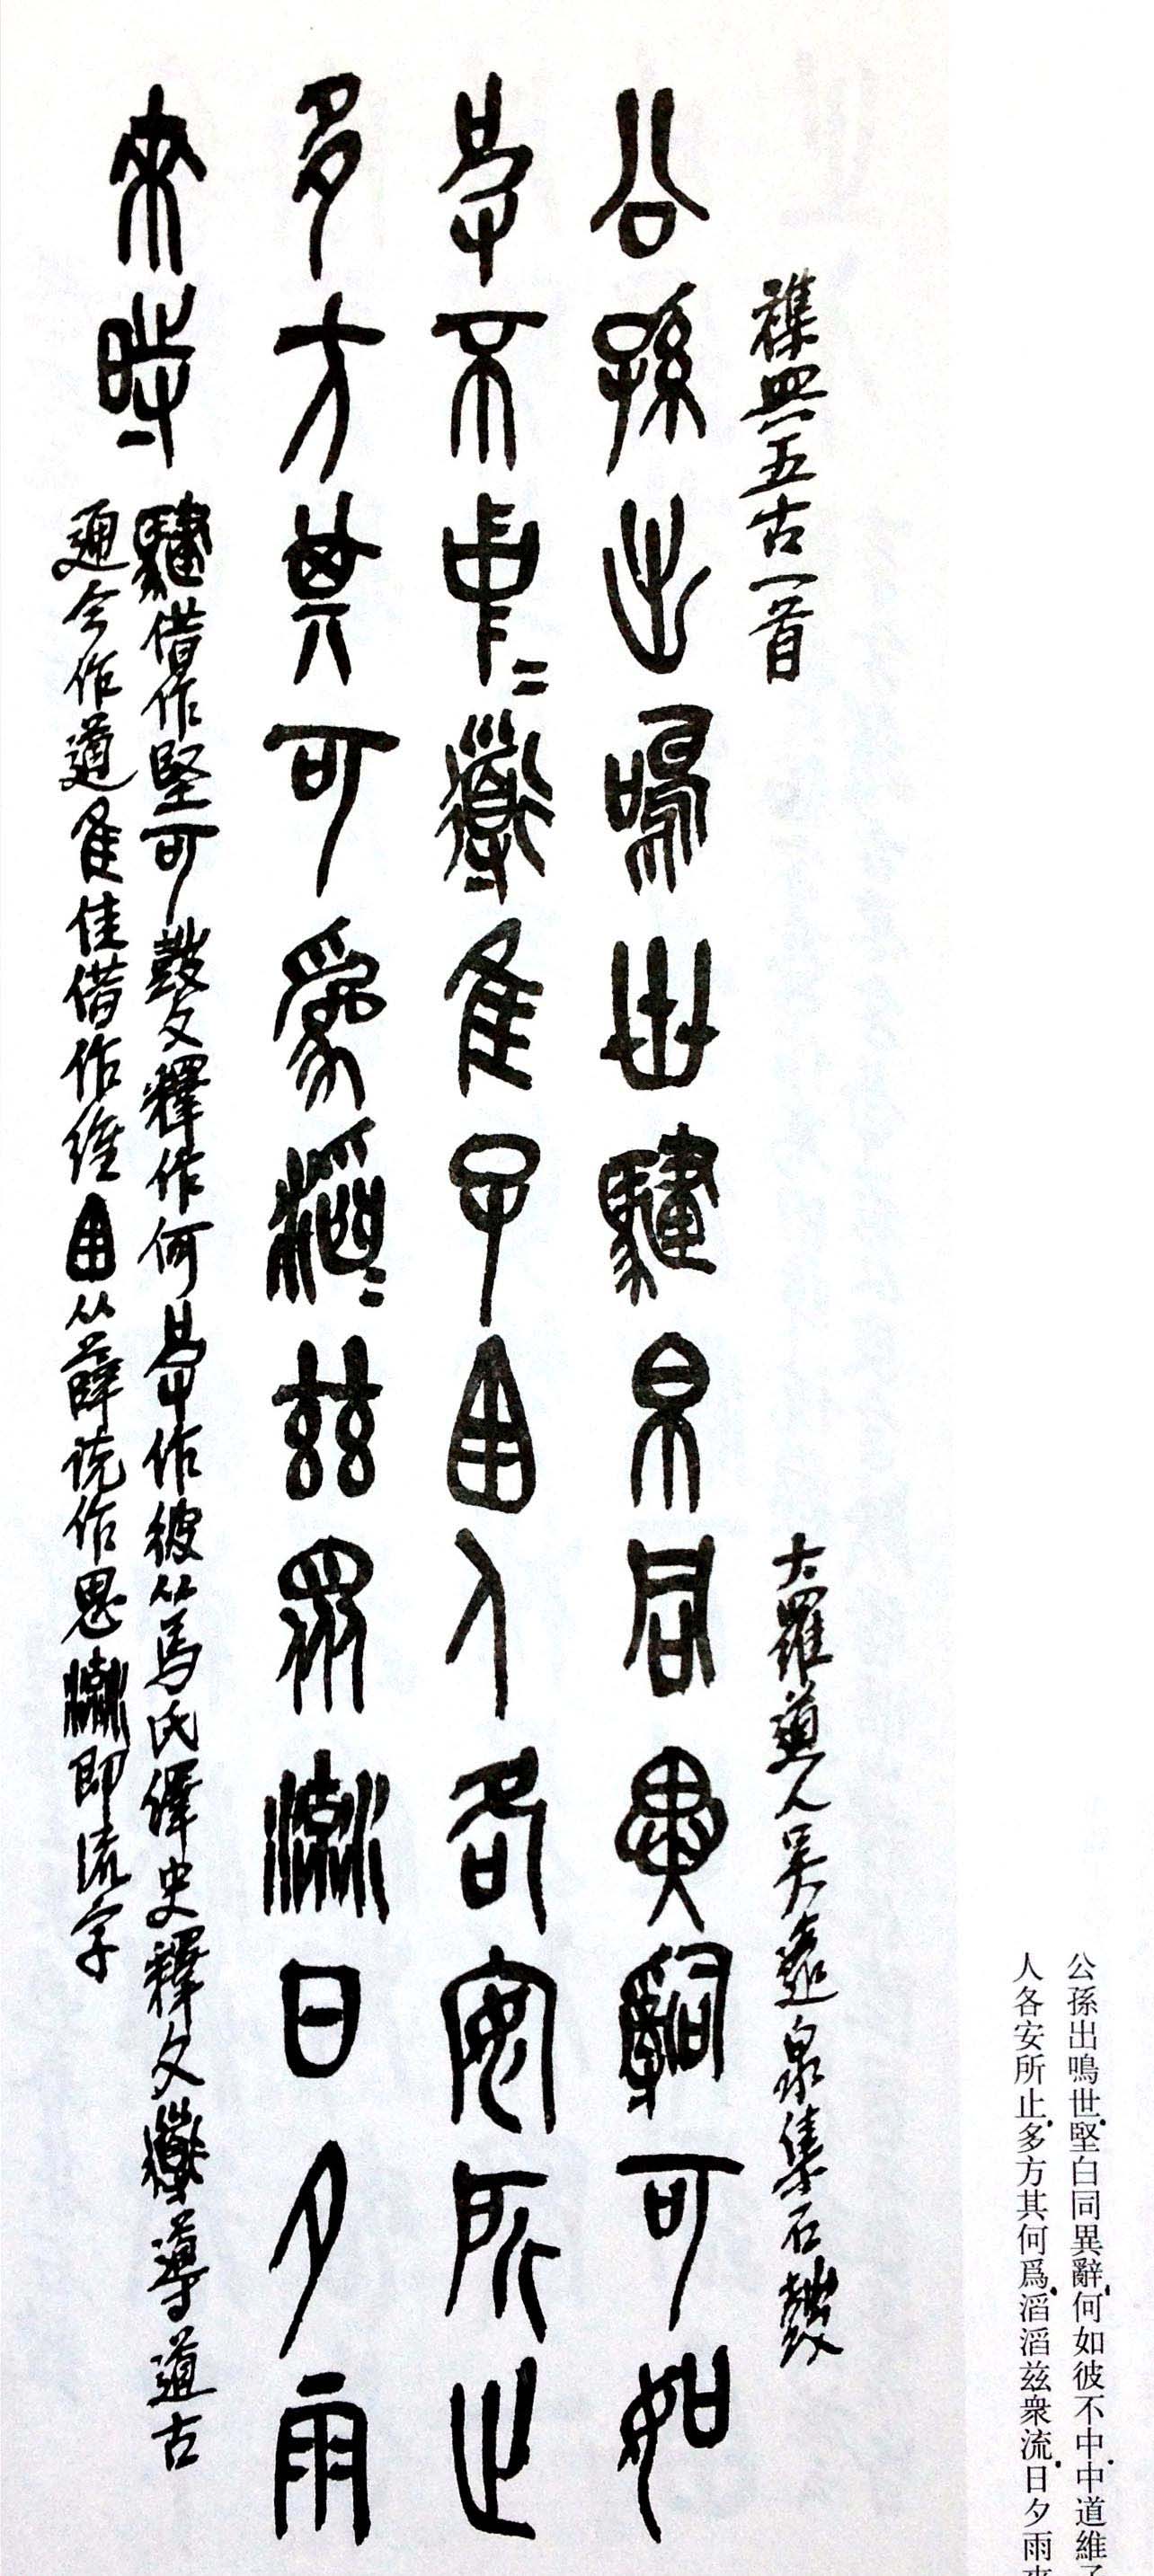 公孫出鳴世堅白同異辭何如彼不中中道維
人各安所止多方其何爲滔滔玆衆流日夕雨來
襍興五古一首
大羅道人吳遠泉集石鼓
公孫出鳴世騝白同異辭可如
𢍰不中〻導隹子甶人各安所止
多方其可爲滔〻玆衆流日夕雨
來時
騝借作堅可鼓文釋作何𢍰作彼从馬氏繹史釋文導道古
通今作道隹佳借作維甶从薛說作思流即流字